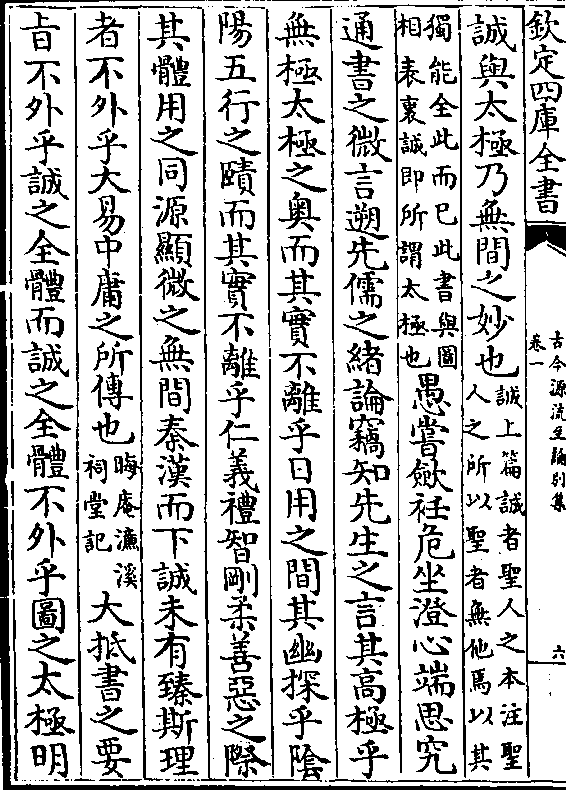 欽定四庫全書
古今源流至論別集
卷一
六
誠與太極乃無間之妙也誠上篇誠者聖人之本注聖
人之所以聖者無他焉以其
獨能全此而已此書與圖
相表裏誠即所謂太極也愚嘗斂衽危坐澄心端思究
通書之微言遡先儒之緒論竊知先生之言其高極乎
無極太極之奥而其實不離乎日用之間其幽探乎陰
陽五行之賾而其實不離乎仁義禮智剛柔善惡之際
其體用之同源顯微之無間秦漢而下誠未有臻斯理
者不外乎大易中庸之所傳也晦庵濂溪
祠堂記大抵書之要
旨不外乎誠之全體而誠之全體不外乎圖之太極明